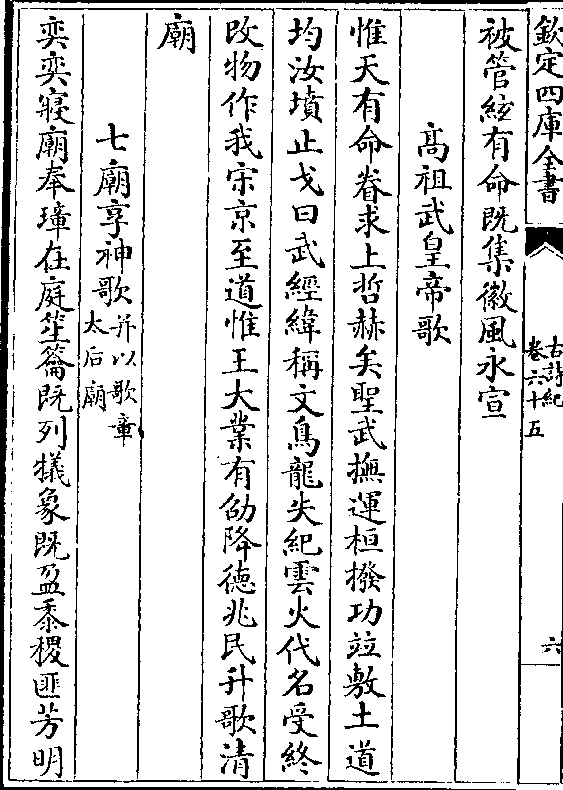 欽定四庫全書
古詩紀
卷六十五
六
被管絃有命既集徽風永宣
髙祖武皇帝歌
惟天有命眷求上哲赫矣聖武撫運桓撥功竝敷土道
均汝墳止戈曰武經緯稱文鳥龍失紀雲火代名受終
改物作我宋京至道惟王大業有劭降德兆民升歌清
廟
七廟享神歌并以歌章太后廟
奕奕寢廟奉璋在庭笙籥既列犧象既盈黍稷匪芳明